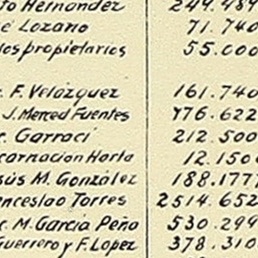 to Hernández 249.489
é Lozano 71.740
los propietarios 55.000
F. Velázquez 161.740
J. Merced Fuentes 776.622
Garraci 212.500
carnación Horta 12.150
sús M. González 188.177
enceslao Torres 2514.652
M. García Peño 530.299
Guerrero y F. López 378.310